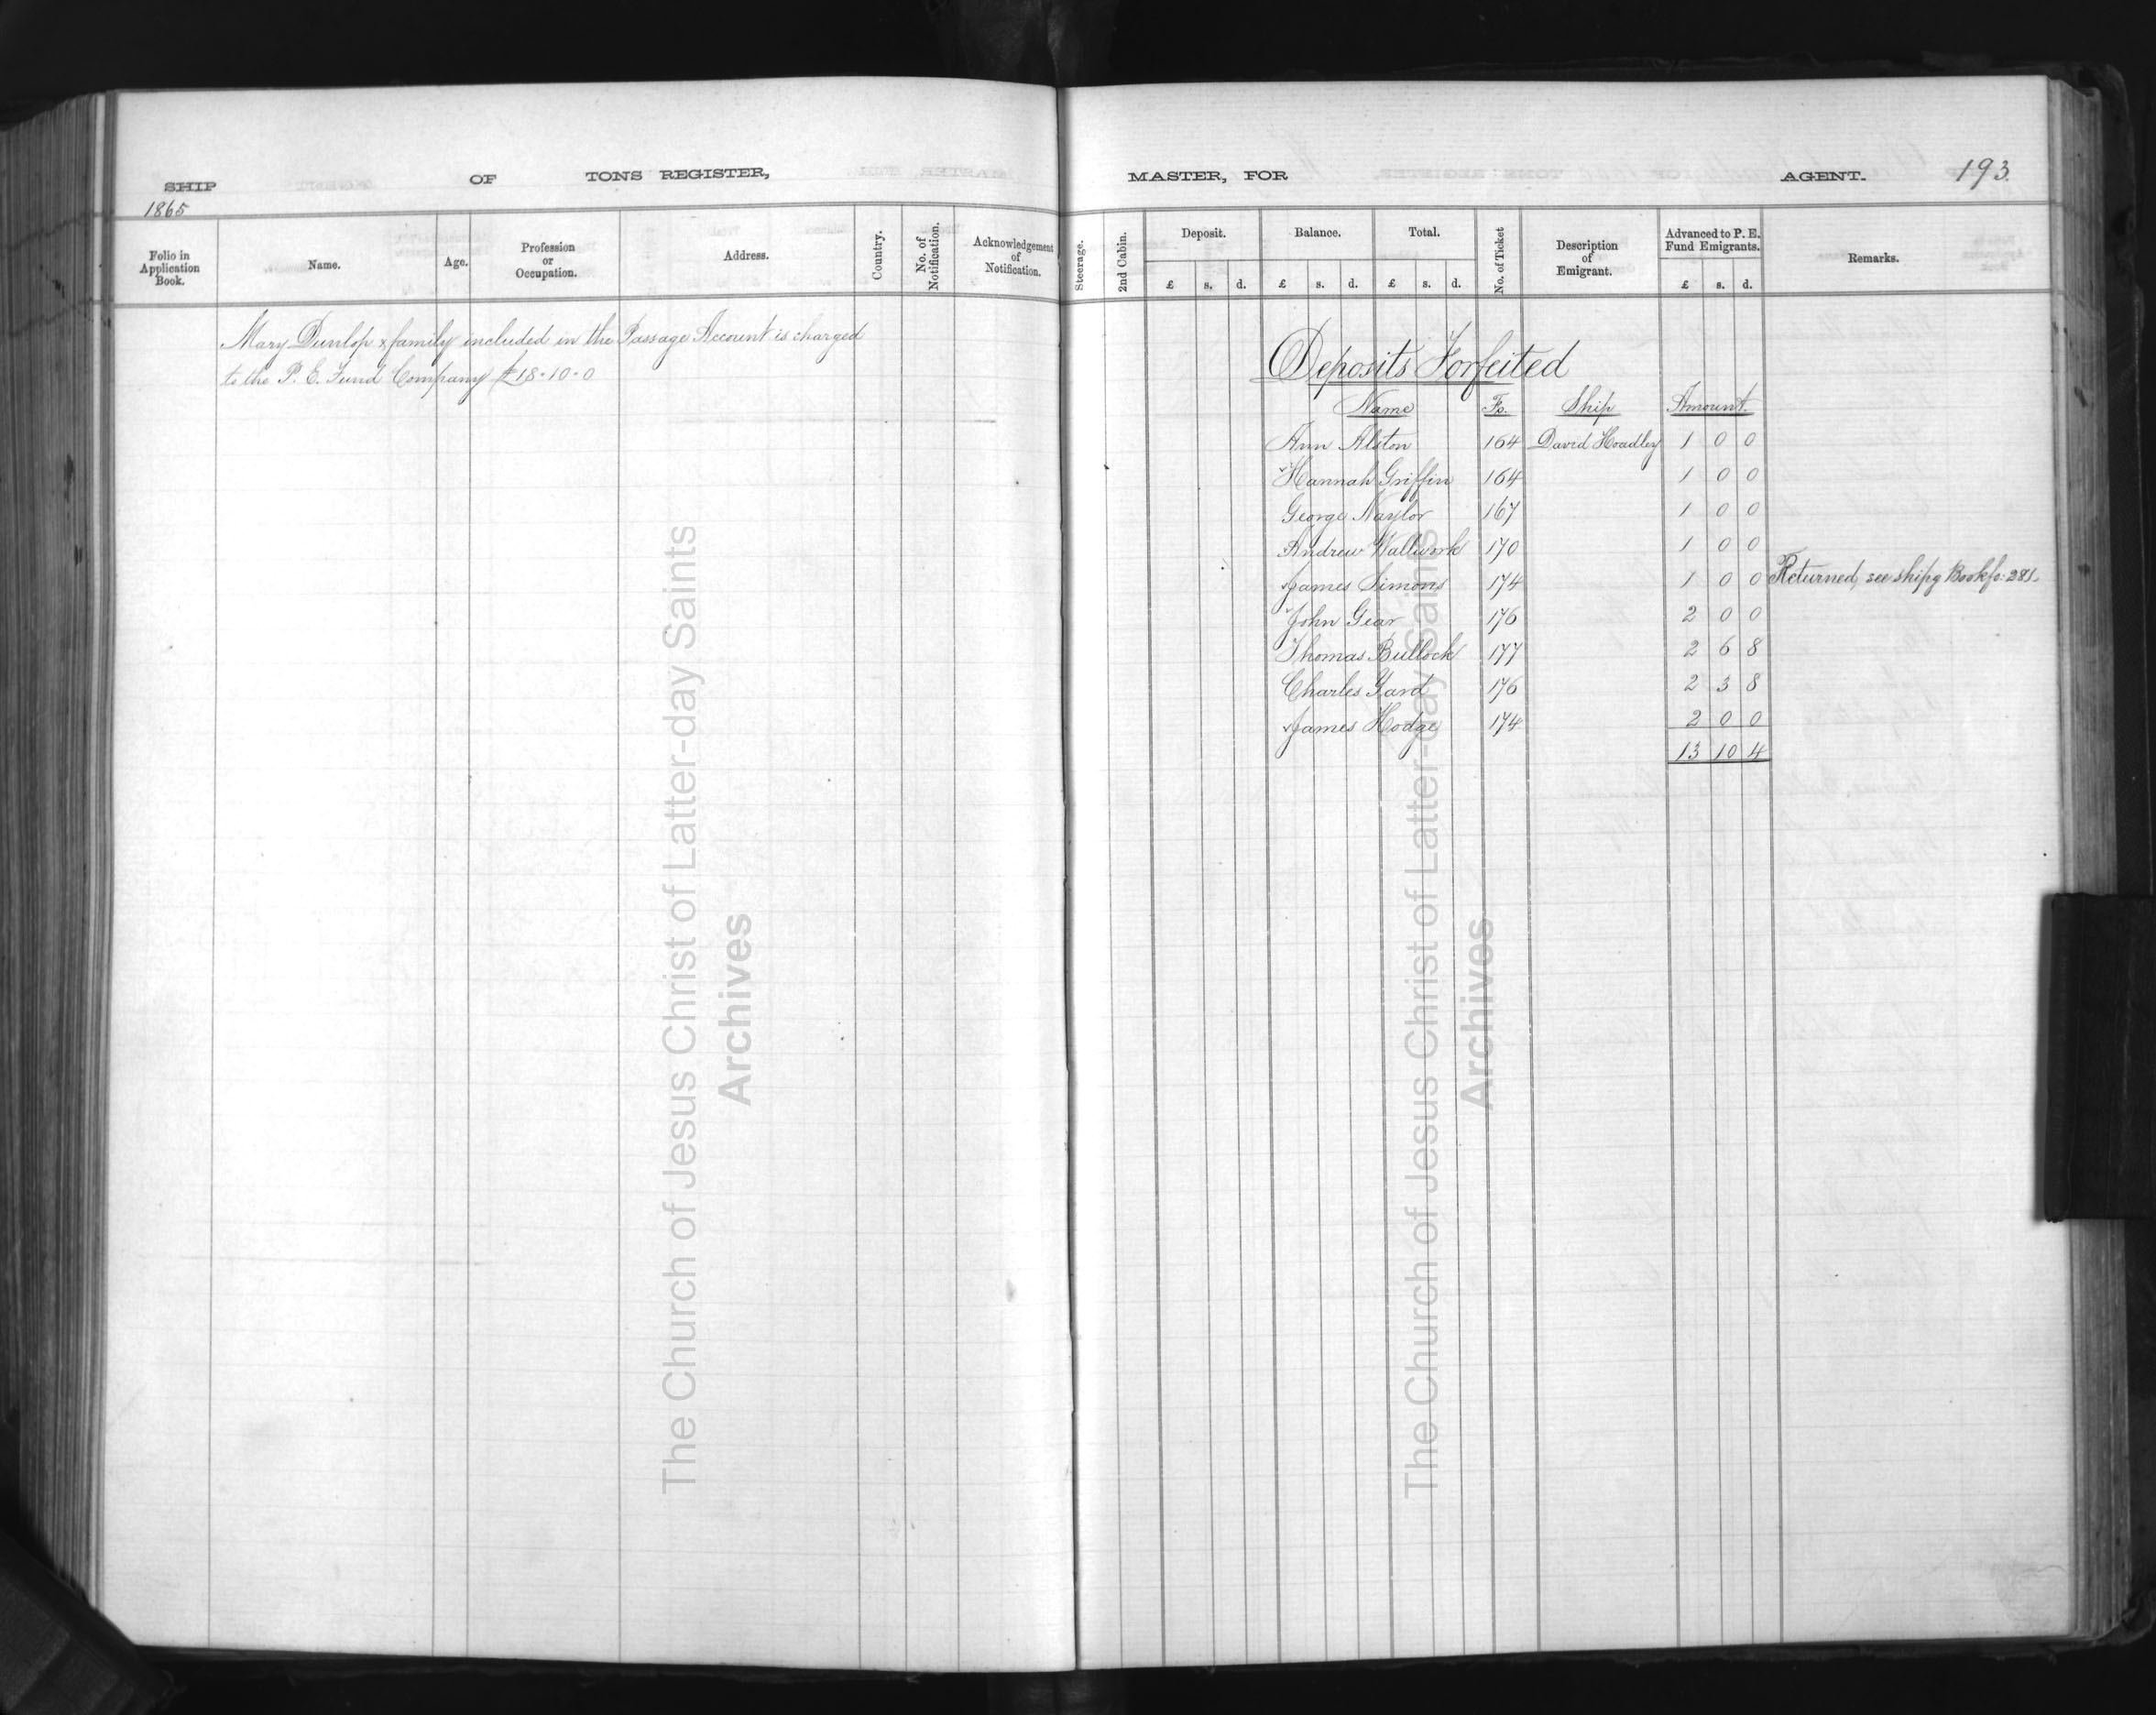 SHIP OF TONS REGISTER,
1865
Folio in Application Book. Name. Age. Profession or Occupation. Address. Country. No. of Notification. Acknowledgement of Notification.
Mary Dunlop & family included in the Passage Account is charged
to the P. E. Fund Company £18-10-0
The Church of Jesus Christ of Latter-day Saints
Archives
MASTER, FOR AGENT. 193
Steerage. 2nd Cabin. Deposit. Balance. Total. No. of Ticket Description of Emigrant. Advanced to P. E. Fund Emigrants. Remarks.
£ s. d. £ s. d. £ s. d. £ s. d.
Deposits Forfeited
Name Fo. Ship Amount
Ann Alston 164 David Hoadley 1 0 0
Hannah Griffin 164 1 0 0
George Naylor 167 1 0 0
Andrew Wallwork 170 1 0 0
James Simons 174 1 0 0 Returned, see shipg Book fo: 281.
John Gear 176 2 0 0
Thomas Bullock 177 2 6 8
Charles Yard 176 2 3 8
James Hodge 174 2 0 0
13 10 4
The Church of Jesus Christ of Latter-day Saints
Archives